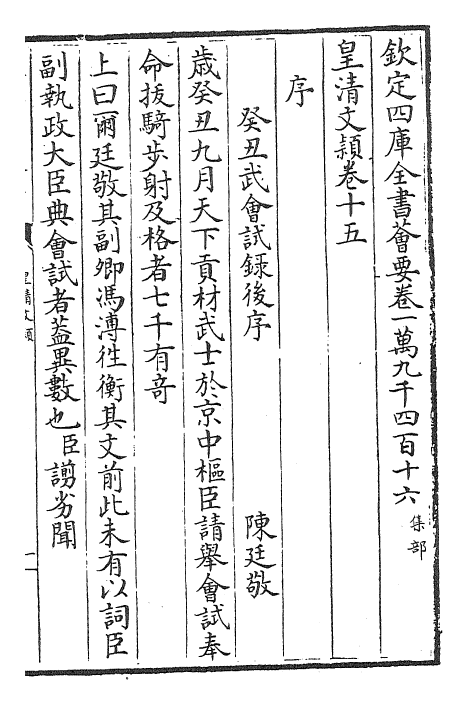 欽定四庫全書薈要卷一萬九千四百十六 集部
皇清文穎卷十五
序
癸丑武會試録後序 陳廷敬
歲癸丑九月天下貢材武士於京中樞臣請舉會試奉
命拔騎步射及格者七千有竒
上曰爾廷敬其副卿馮溥徃衡其文前此未有以詞臣
副執政大臣典會試者葢異數也臣謭劣聞
皇清文穎